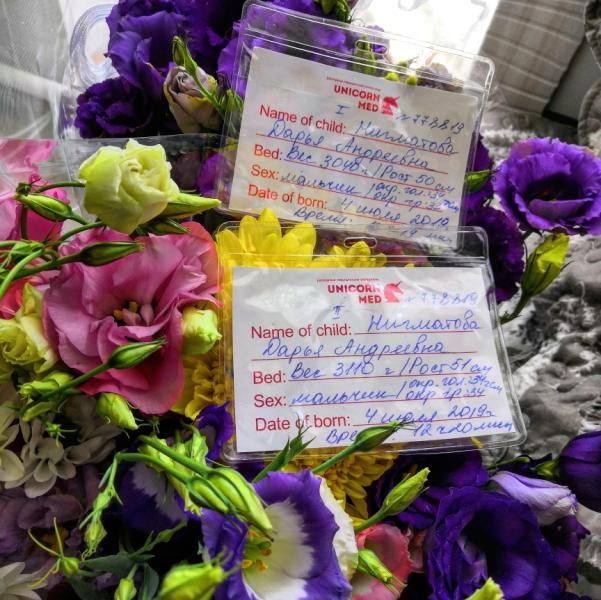 UNICORN
MED
I № 773819
Name of child: Нигматова
Дарья Андреевна
Bed: Вес 3048 г/Рост 50 см
Sex: мальчик/окр. гол.
окр гр.
Date of born: 4 июля 2019г
Время: мин
UNICORN
MED
II № 773819
Name of child: Нигматова
Дарья Андреевна
Bed: Вес 3110 г/Рост 51 см
Sex: мальчик/окр. гол. см
окр гр. 34
Date of born: 4 июля 2019г
Время 12 ч 20 мин